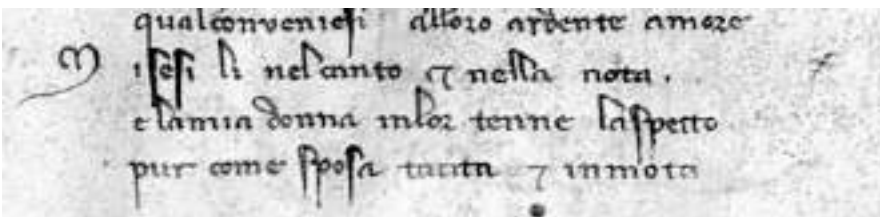 qualconveniesi alloro ardente amore
M isesi li nel canto ⁊ nella nota .
e lamia donna inlor tenne laspetto
pur come sposa tacita ⁊ inmota